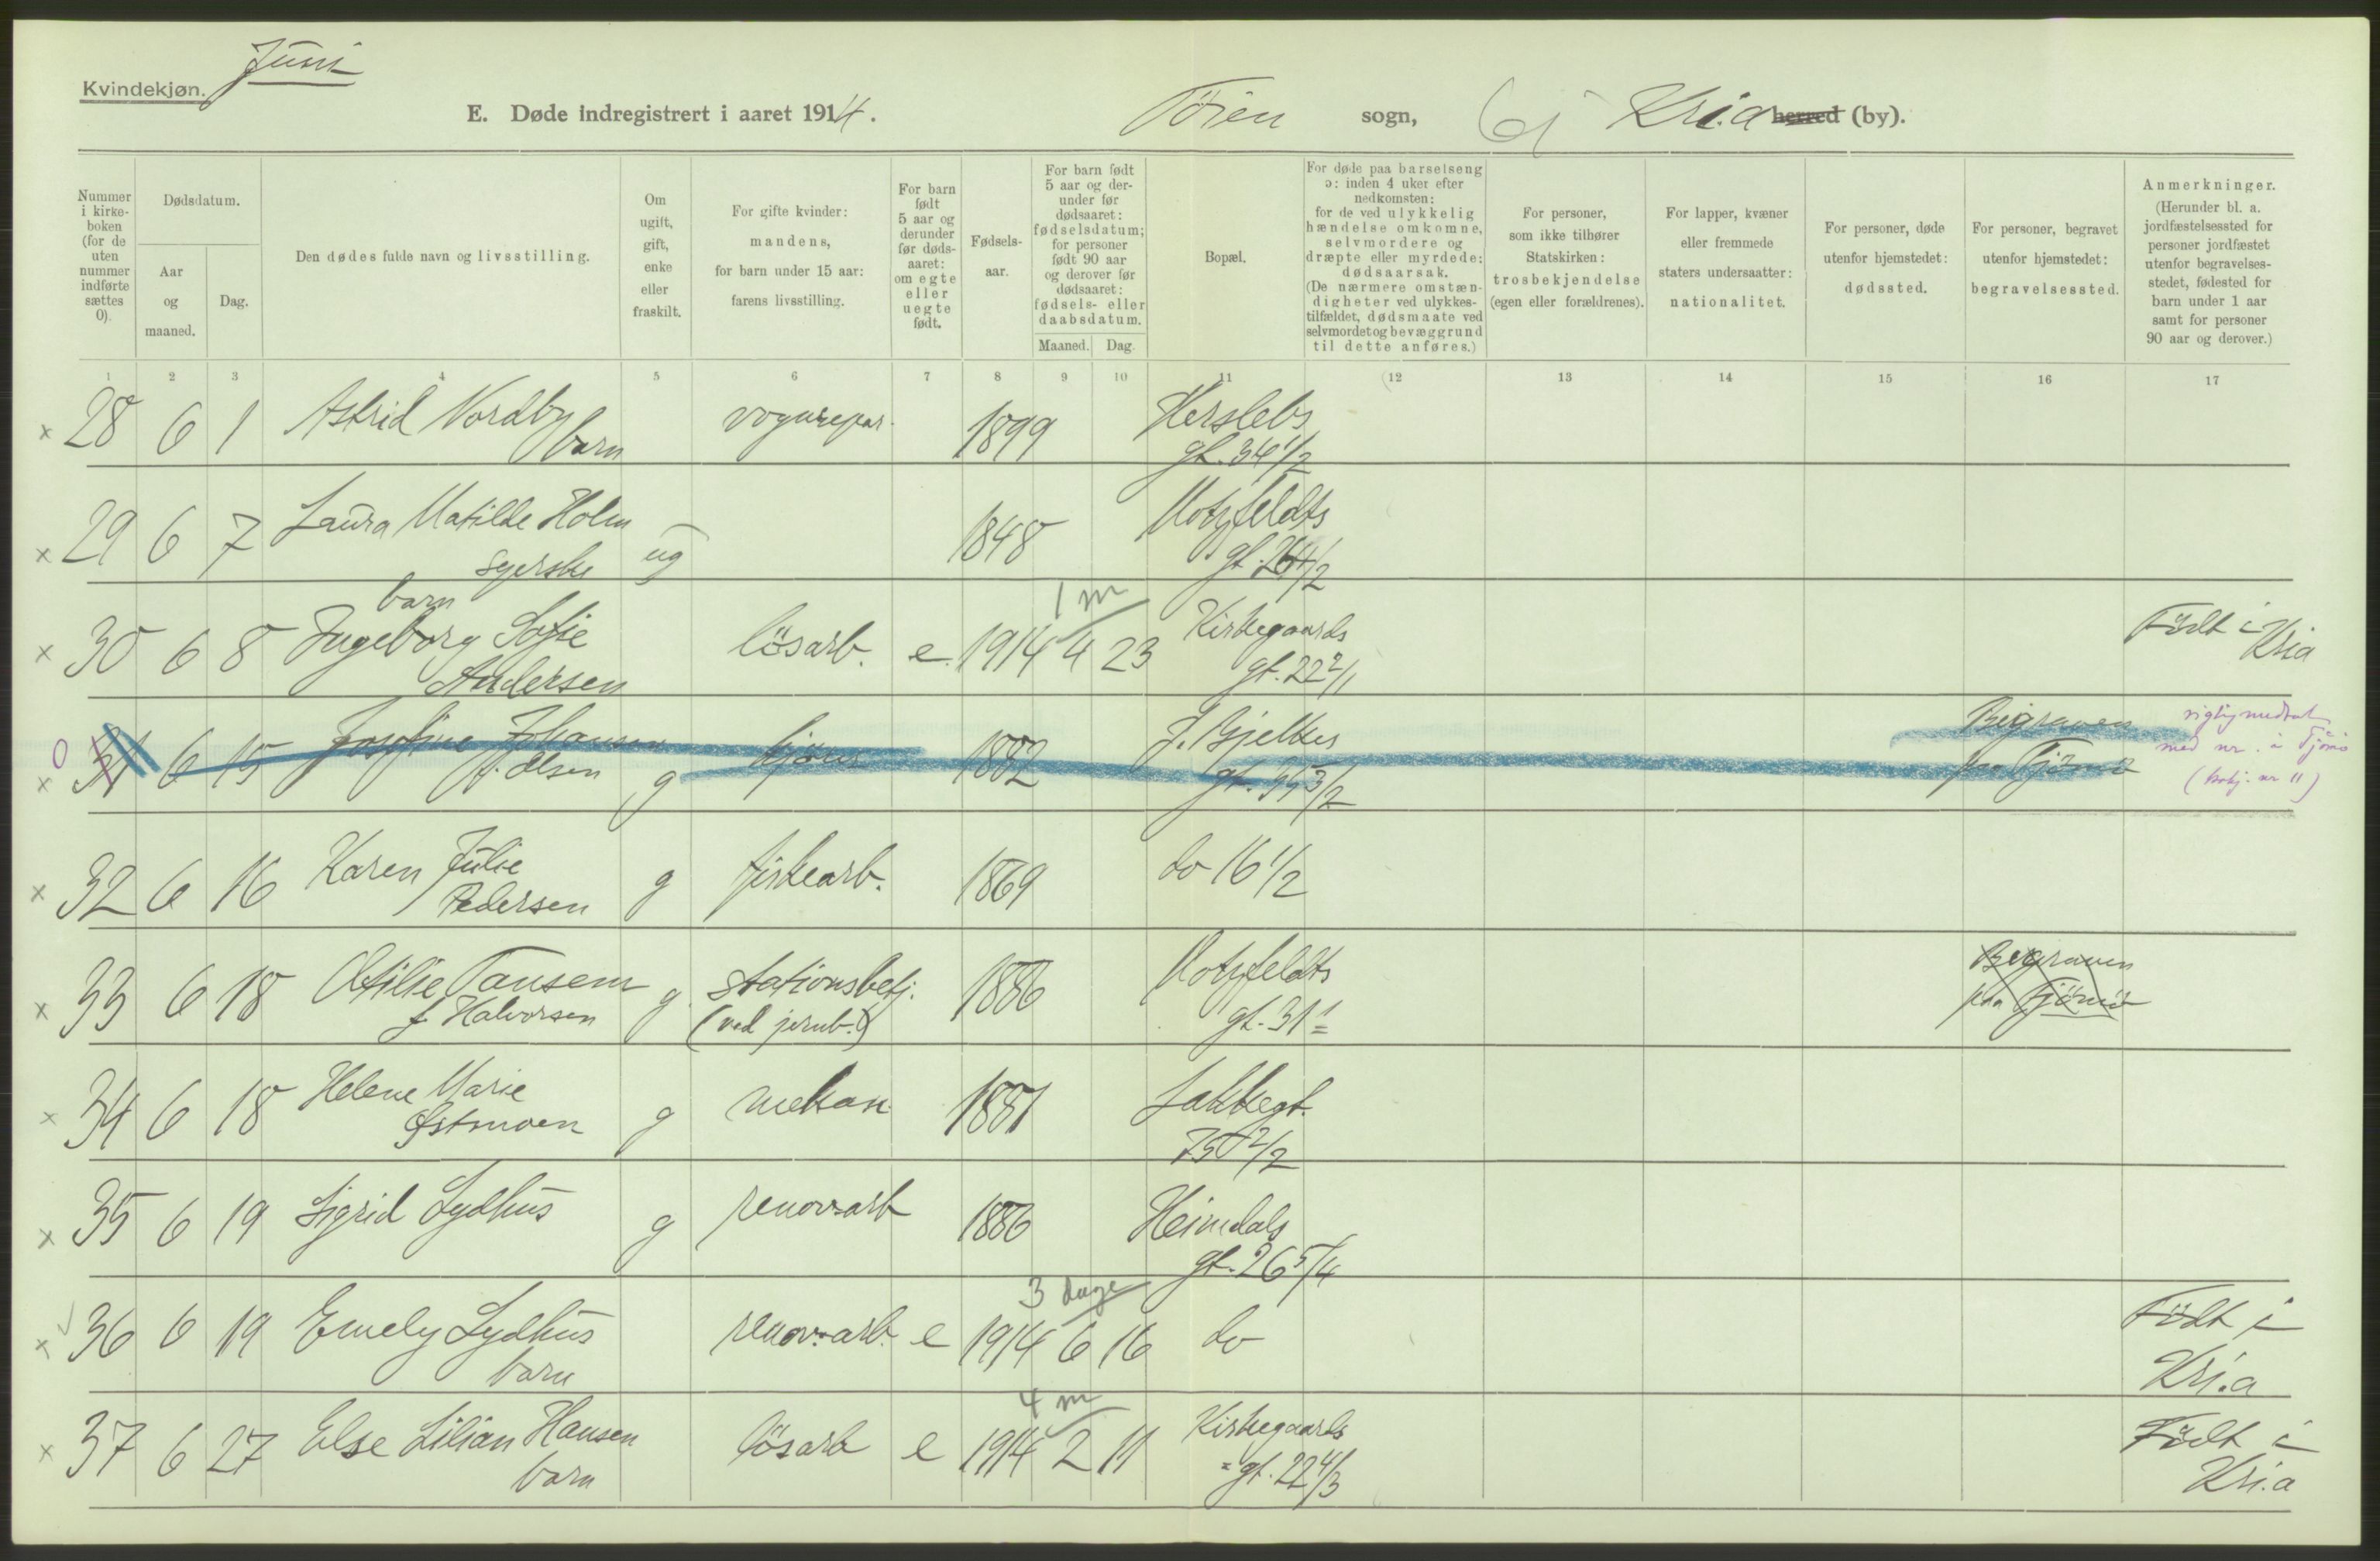 Juni
Kvindekjøn.
E. Døde indregistrert i aaret 1914. Töien sogn, Kria herred (by).
Nummer i kirkeboken (for de uten nummer indførte sættes 0).
Dødsdatum.
Aar og maaned.
Dag.
Den dødes fulde navn og livsstilling.
Om ugift, gift, enke eller fraskilt.
For gifte kvinder: mandens, for barn under 15 aar: farens livsstilling.
For barn født 5 aar og derunder før dødsaaret: om egte eller uegte født.
Fødselsaar.
For barn født 5 aar og derunder før dødsaaret: fødselsdatum; for personer født 90 aar og derover før dødsaaret: fødsels- eller daabsdatum.
Maaned. Dag.
Bopæl.
For døde paa barselseng ɔ: inden 4 uker efter nedkomsten: for de ved ulykkelig hændelse omkomne, selvmordere og dræpte eller myrdede: dødsaarsak. (De nærmere omstændigheter ved ulykkestilfældet, dødsmaate ved selvmordet og bevæggrund til dette anføres.)
For personer, som ikke tilhører Statskirken: trosbekjendelse (egen eller forældrenes).
For lapper, kvæner eller fremmede staters undersaatter: nationalitet.
For personer, døde utenfor hjemstedet: dødssted.
For personer, begravet utenfor hjemstedet: begravelsessted.
Anmerkninger. (Herunder bl. a. jordfæstelsessted for personer jordfæstet utenfor begravelsesstedet, fødested for barn under 1 aar samt for personer 90 aar og derover.)
1 2 3 4 5 6 7 8 9 10 11 12 13 14 15 16 17
x 28 6 1 Astrid Nordby vognrepar. 1899 Herslebs
barn gt. 34 1/2
x 29 6 7 Laura Matilde Holm ug 1848 Motzfeldts
syerske gt. 24 1/2
barn 1 m
x 30 6 8 Ingeborg Sofie lösarb. e. 1914 4 23 Kirkegaards Födt i
Andersen gt. 22 2/1 Kria
0 x 31 6 15 Josefine Johansen g 1882 J. Bjelkes Begraven
f. Olsen gt. 35 3/2 paa Tjömö
rigtig medtat
med nr. i Tjömö
(kbkj. nr 11)
x 32 6 16 Karen Julie g fiskearb. 1869 do 16 1/2
Pedersen
x 33 6 18 Otilie Tansem g. stationsbetj. 1886 Motzfeldts Begraven
f. Halvorsen (ved jernb.) gt. 31 1 paa Tjömö
x 34 6 18 Helene Marie g mekan. 1881 Lakkegt.
Østmoen 75 2/2
x 35 6 19 Sigrid Lydhus g renov.arb 1886 Heimdals
gt. 26 5/4
3 dage
x 36 6 19 Emely Lydhus renov.arb. e 1914 6 16 do Födt i
barn Kri.a
4 m
x 37 6 27 Else Lilian Hansen lösarb e 1914 2 11 Kirkegaards Födt i
barn gt. 22 4/3 Kri.a